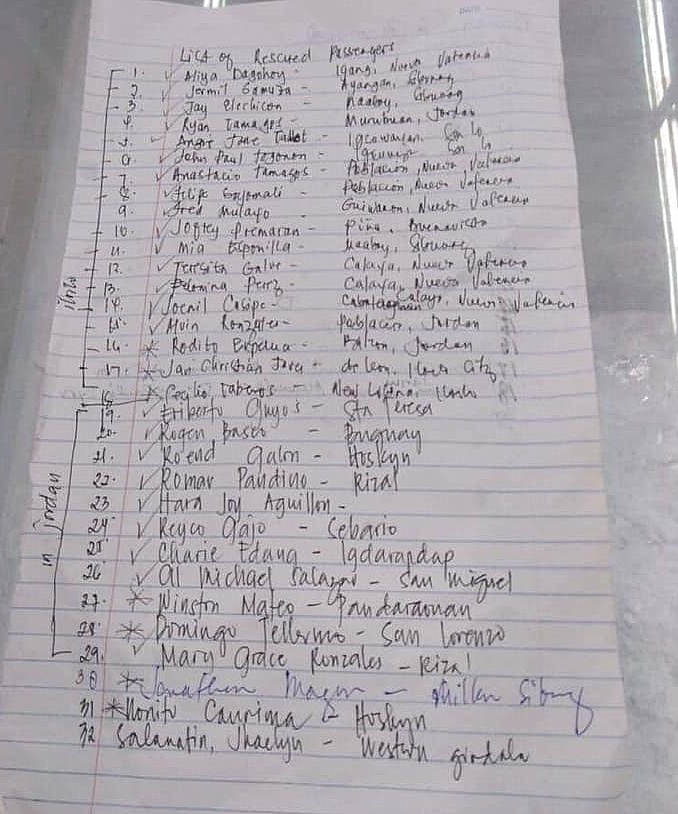 List of Rescued Passengers
1. ✓ Aliya Dagohoy - Igang, Nueva Valencia
2. ✓ Jermil Gamuza - Ayangan, Sibunag
3. ✓ Jay Elechicon - Maabay, Sibunag
4. ✓ Ryan Tamagos - Murubuan, Jordan
5. ✓ Angie Jane Tallot - Igcawayan, San Lo
6. ✓ John Paul - San Lo
7. ✓ Anastacio Tamagos - Poblacion, Nueva Valencia
8. ✓ Felipe Gajomali - Poblacion, Nueva Valencia
9. ✓ Fred Mulayo - Guiwanon, Nueva Valencia
10. ✓ Joffrey Premaran - Piña, Buenavista
11. ✓ Mia Esponilla - Maabay, Sibunag
12. ✓ Teresita Galve - Calaya, Nueva Valencia
13. ✓ Perez - Calaya, Nueva Valencia
14. ✓ Joenil Casipe - Calaya, Nueva Valencia
15. ✓ Alvin Ronzales - Poblacion, Jordan
16. * Rodito - Jordan
17. * Jan Christian Java - de Leon, Iloilo City
18. * Cecilio Taberos - New Lucena, Iloilo
19. ✓ Eriberto Guyos - Sta Teresa
20. ✓ Rogen Basco - Buguay
21. ✓ Ro'end Galon - Hoskyn
22. ✓ Romar Pandino - Rizal
23 ✓ Hara Joy Aguillon -
24 ✓ Reyco Gajo - Sebario
25 ✓ Charie Edang - Igdarapdap
26 ✓ Al Michael Salazar - San Miguel
27. * Winston Mateo - Pandaraonan
28. * Domingo Tellermo - San Lorenzo
29. ✓ Mary Grace Ronzales - Rizal
30 * Jonathan Magan -
31 * Nonito Caurima - Hoskyn
32 Salanatin, Jhaelyn - Western
iloilo
in Jordan